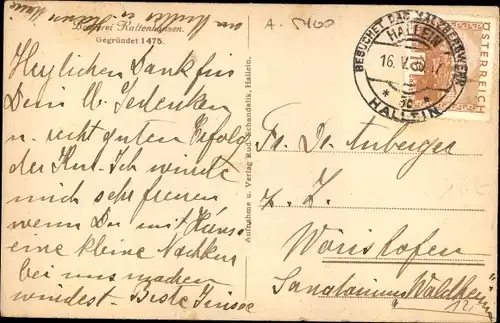 Brauerei Kaltenhausen.
Gegründet 1475.
A. 5400
Herzlichen Dank für
Dein lb. Gedenken
u. recht guten Erfolg
der Kur. Ich würde
mich sehr freuen
wenn Du mit
eine kleine Nachkur
bei uns machen
würdest. Beste Grüsse
Aufnahme u. Verlag Rud. Schandalik, Hallein.
BESUCHET DAS SALZBERGWERK
HALLEIN
16. V. 36
* 9c *
HALLEIN
ÖSTERREICH
Fr. Dr. Amberger
z. Z.
Wörishofen
Sanatorium "Waldheim"